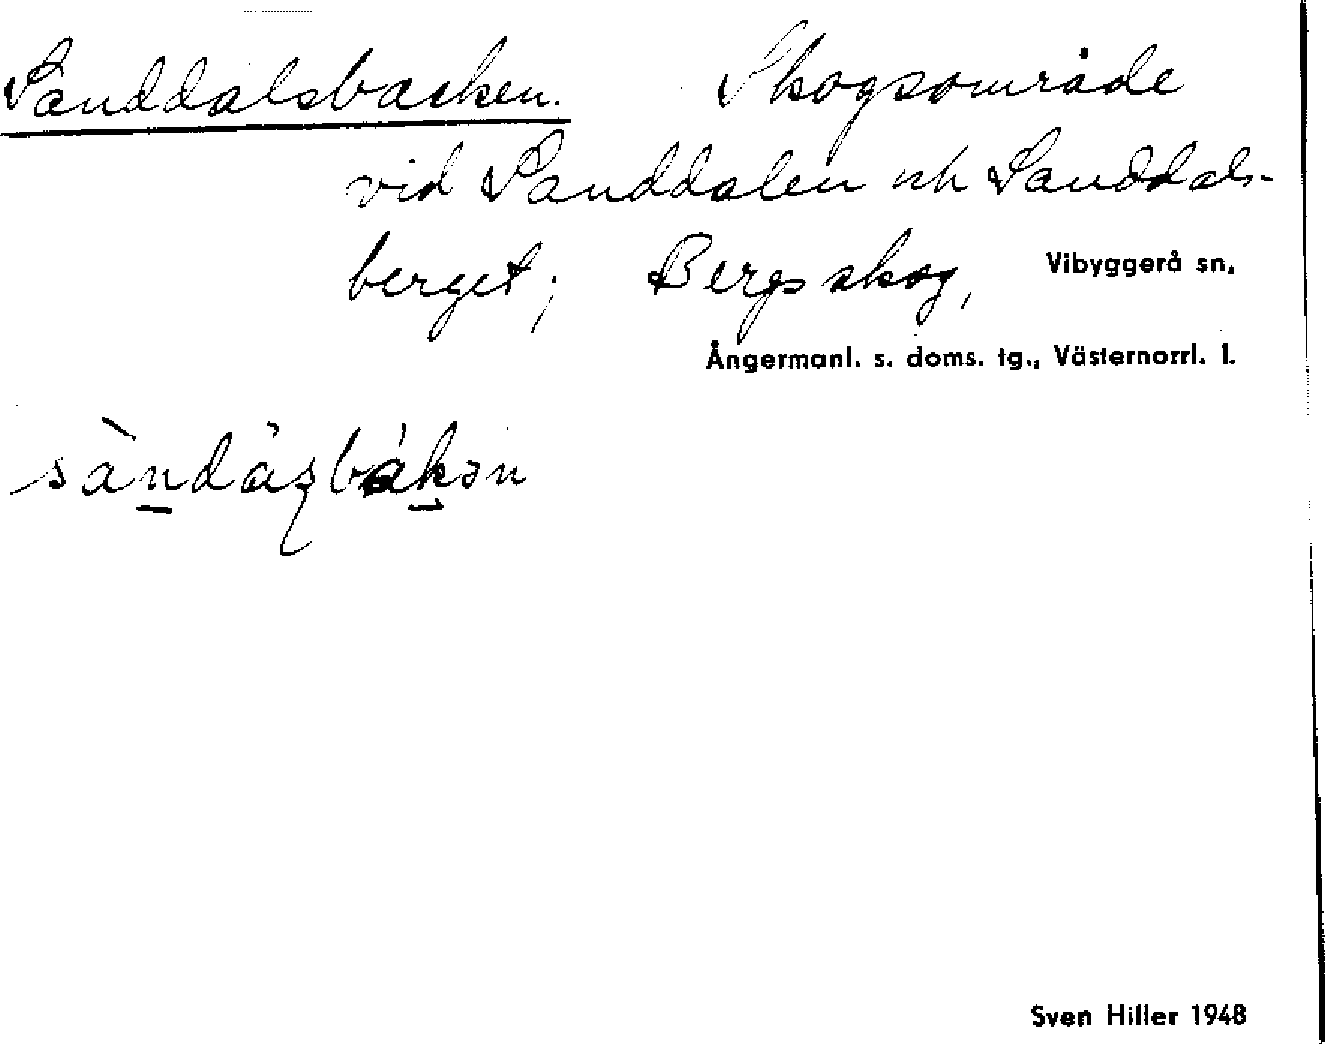 Sanddalsbacken. Skogsområde
vid Sanddalen och Sanddals-
berget; Bergsskog, Vibyggerå sn.
Ångermanl. s. doms. tg., Västernorrl. l.
Sven Hiller 1948